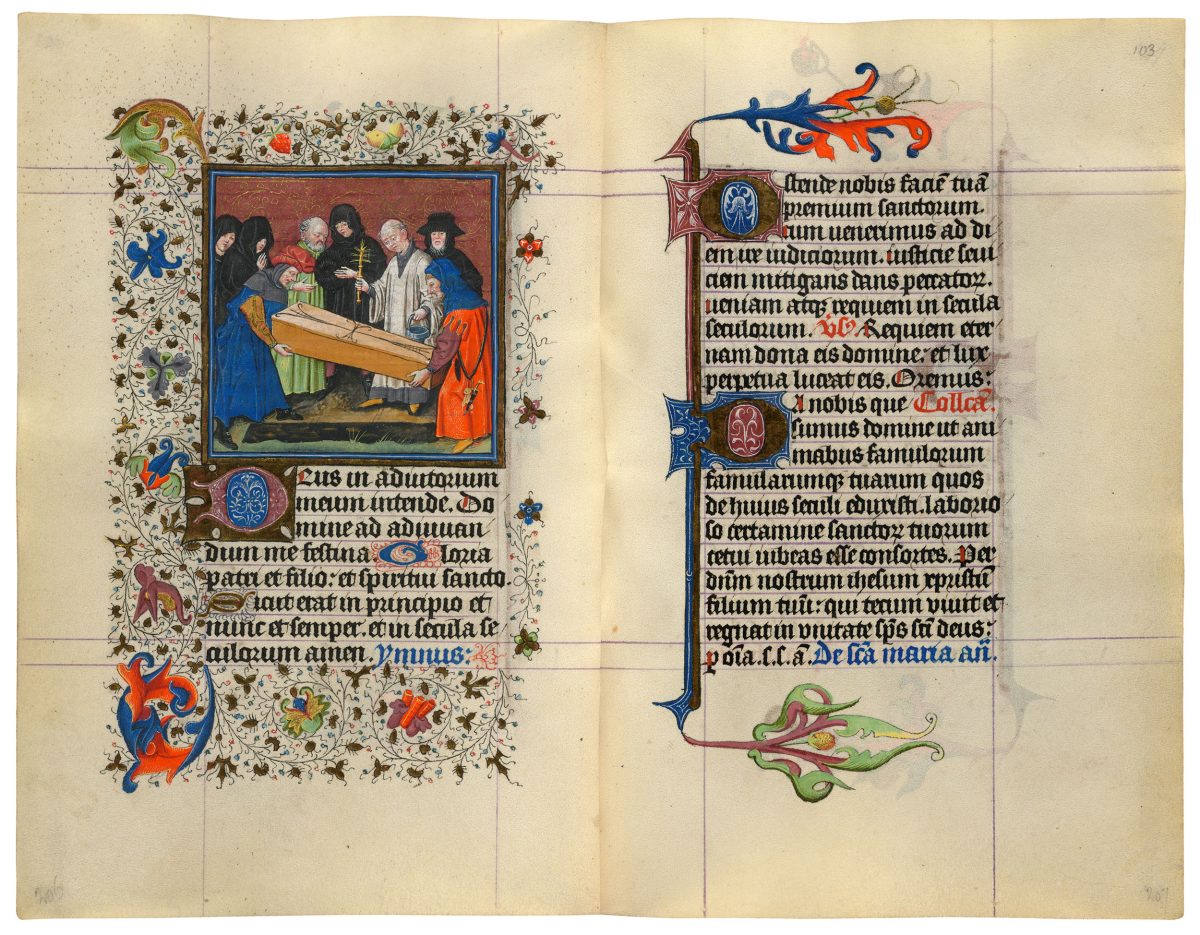 Deus in adiutorium
meum intende. Do
mine ad adiuuan
dum me festina. Gloria
patri et filio: et spiritui sancto.
Sicut erat in principio et
nunc et semper. et in secula se
culorum amen. ymnus:
206
103
Ostende nobis faciē tuā
premium sanctorum.
cum uenerimus ad di
em ire iudiciorum. iusticie seui
ciem mitigans dans peccatoꝝ.
ueniam atqꝫ requiem in secula
seculorum. Requiem eter
nam dona eis domine: et lux
perpetua luceat eis. Oremus:
Da nobis que Collcā.
sumus domine ut ani
mabus famulorum
famularumqꝫ tuarum quos
de huius seculi eduxisti. laborio
so certamine sanctoꝝ tuorum
cetui iubeas esse consortes. Per
dn̄m nostrum ihesum xpristū
filium tuū: qui tecum viuit et
regnat in vnitate sp̄s sc̄i deus:
p oīa. s. s. ā. De sc̄a maria añ.
207